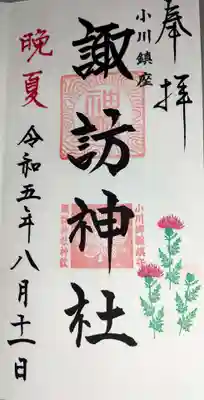 奉拝
小川鎮座
諏訪神社
晩夏
令和五年八月十一日